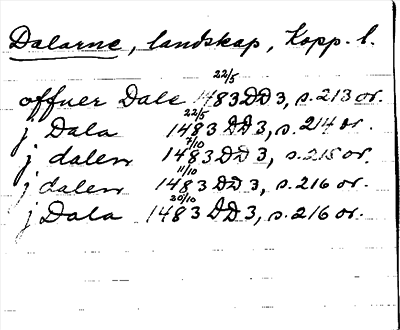 Dalarne, landskap, Kopp. l.
offuer Dale 22/5 1483 DD 3, s. 213 or.
j Dala 22/5 1483 DD 3, s. 214 or.
j dalen 7/10 1483 DD 3, s. 215 or.
j dalen 11/10 1483 DD 3, s. 216 or.
j Dala 20/10 1483 DD 3, s. 216 or.